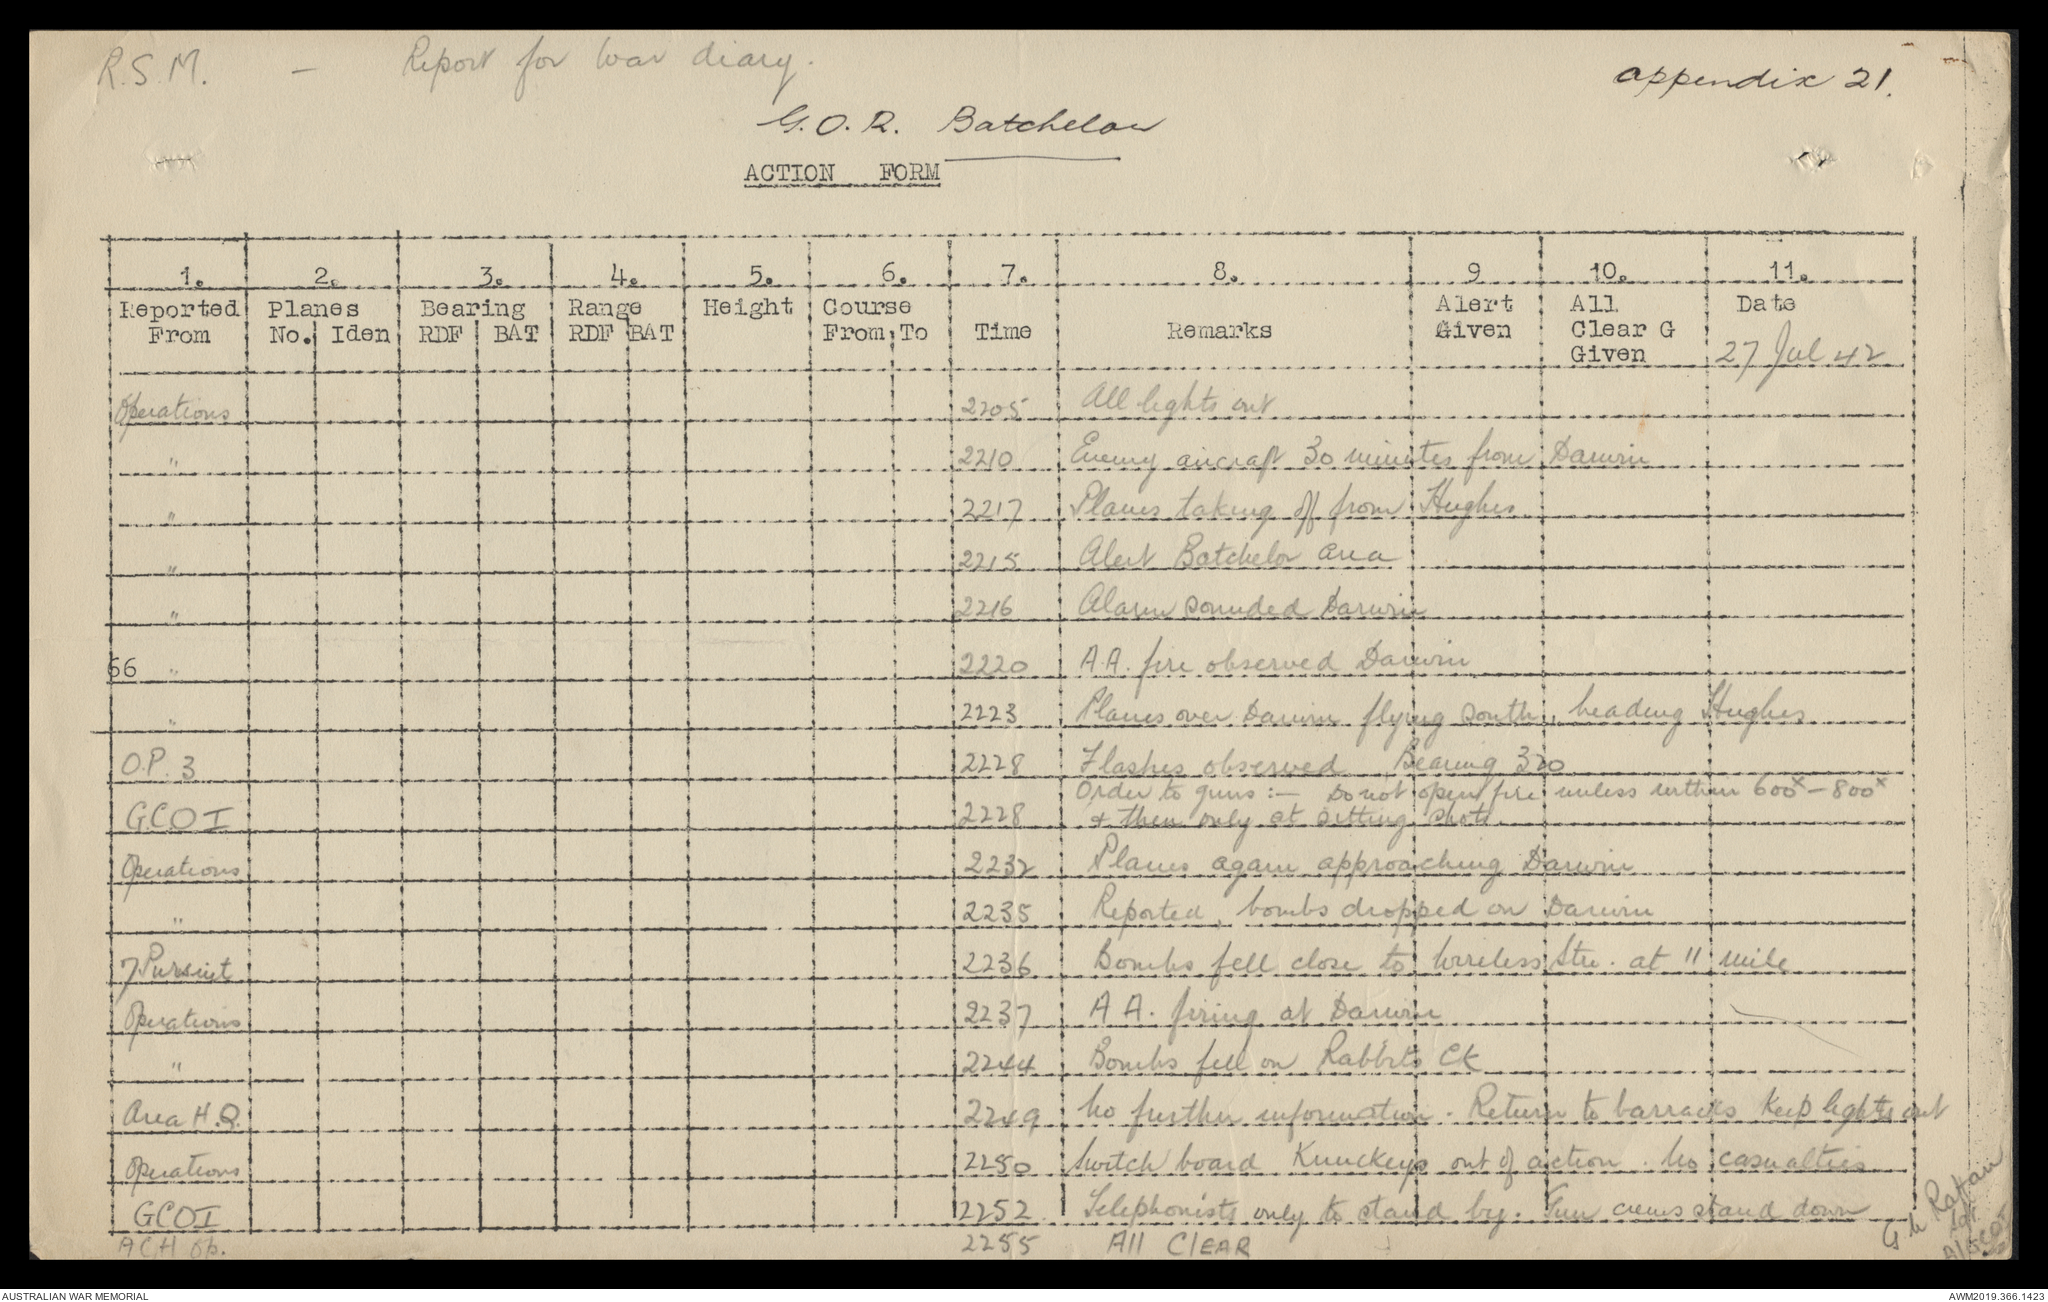 R.S.M. - Report for War diary.
appendix 21.
G.O.R. Batchelor
ACTION FORM
1. 2. 3. 4. 5. 6. 7. 8. 9 10. 11.
Reported From Planes No. Iden Bearing RDF BAT Range RDF BAT Height Course From To Time Remarks Alert Given All Clear G Given Date
27 Jul 42
Operations 2205 All lights out
" 2210 Enemy aircraft 30 minutes from Darwin
" 2217 Planes taking off from Hughes
" 2215 Alert Batchelor area
" 2216 Alarm sounded Darwin
66 " 2220 A.A. fire observed Darwin
" 2223 Planes over Darwin flying south, heading Hughes
O.P. 3 2228 Flashes observed Bearing 320
Order to guns :- Do not open fire unless within 600x - 800x
GCO I 2228 & then only at sitting shots.
Operations 2232 Planes again approaching Darwin
" 2235 Reported, bombs dropped on Darwin
7 Pursuit 2236 Bombs fell close to Wireless Stn. at 11 mile
Operations 2237 A A. firing at Darwin
" 2244 Bombs fell on Rabbits Ck
Area H.Q. 2249 No further information. Return to barracks Keep lights out
Operations 2250 Switch board Knuckeys out of action. No casualties
GCO I 2252 Telephonists only to stand by. Gun crews stand down
ACH Op. 2255 All CLEAR
Sgt
AUSTRALIAN WAR MEMORIAL
AWM2019.366.1423